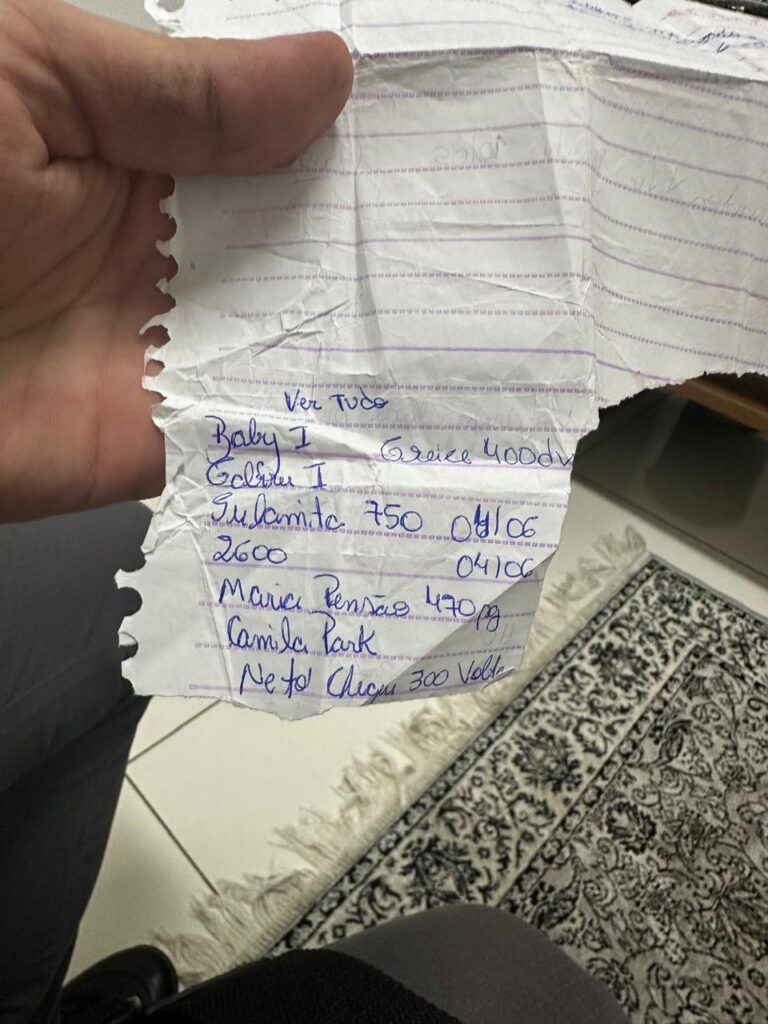 Ver Tudo
Baby I Greice 400
I
Sulamita 750 04/06
2600 04/06
Maria Pensão 470 pg
Camila Park
Neto Cheque 300 Volta